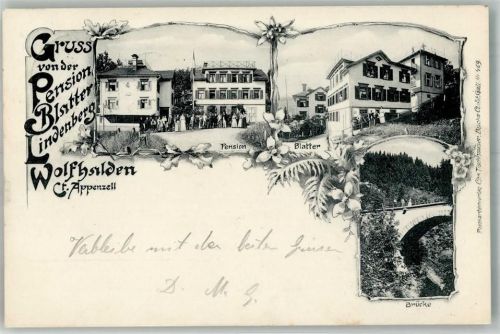 Gruss
von der
Pension
Blatter
Lindenberg
Wolfhalden
Ct. Appenzell
Pension Blatter
Brücke
Verbleibe mit den besten Grüssen
D. M. G.